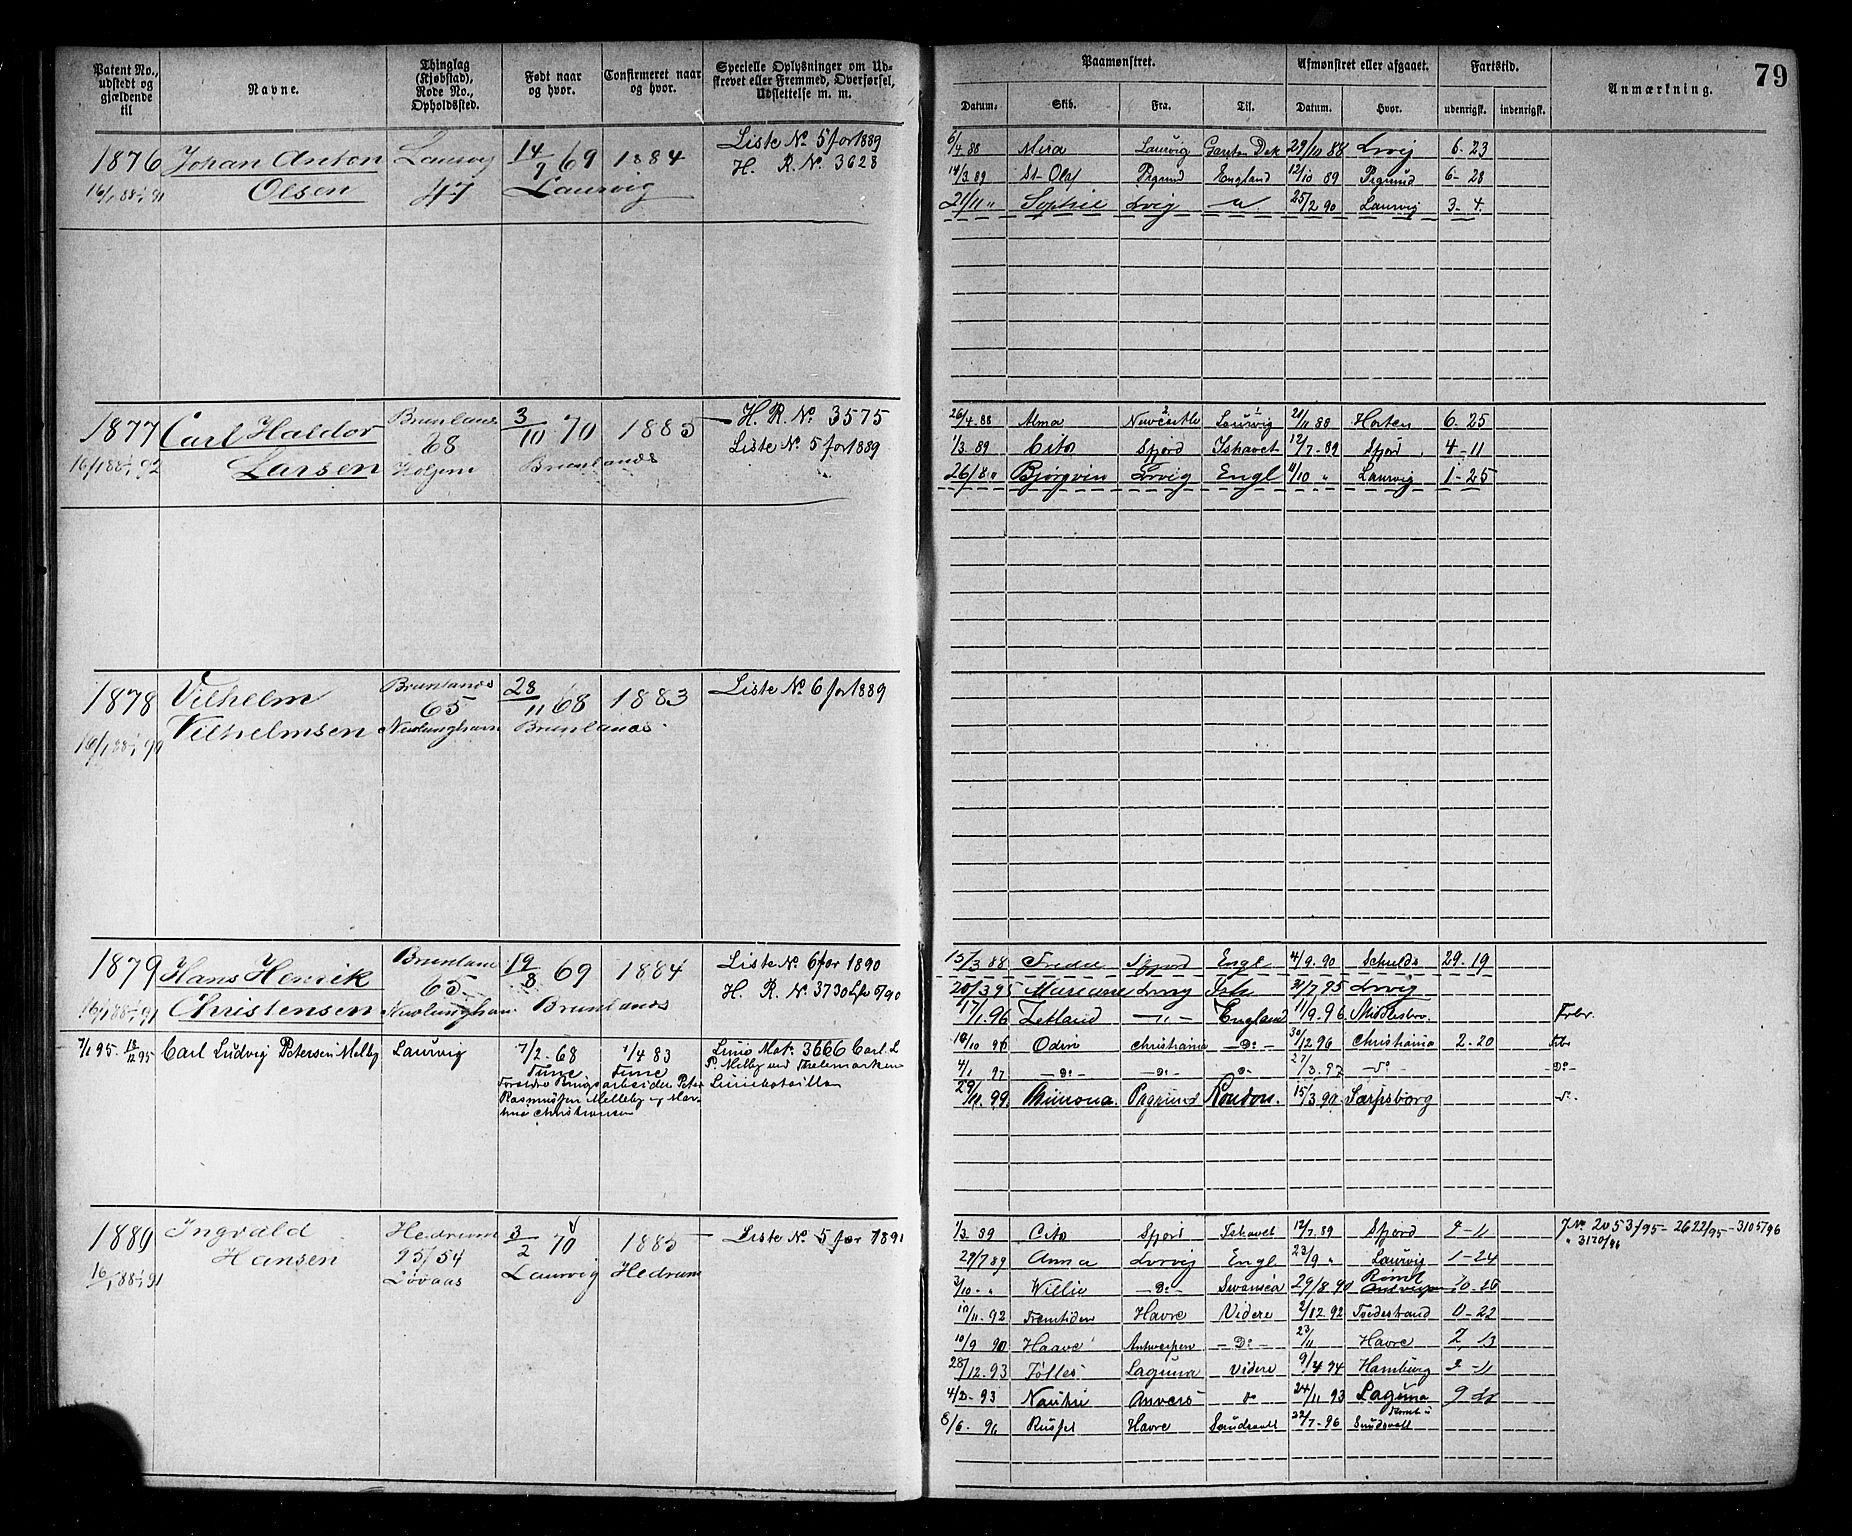 79
Patent No., udstedt og gjældende til
Navne.
Thinglag (Kjøbstad), Rode No., Opholdssted.
Født naar og hvor.
Confirmeret naar og hvor.
Specielle Oplysninger om Udskrevet eller Fremmed, Overførsel, Udslettelse m. m.
Paamønstret.
Afmønstret eller afgaaet.
Fartstid.
Anmærkning.
Datum. Skib. Fra. Til. Datum. Hvor. udenrigsk. indenrigsk.
1876 Johan Anton Laurvig 14/9 69 1884 Liste No 5 for 1889
Olsen 47 Laurvig H. R. No. 3628
16/1 88 1/1 91
6/4 88 Mira Laurvig 29/10 88 Lrvig 6-23
14/3 89 St Olaf Prgrund England 12/10 89 Prgrund 6-28
21/11 " Sophie Lrvig 25/2 90 Laurvig 3-4
1877 Carl Haldor Brunlanes 3/10 70 1885 H. R. No. 3575
Larsen 68 Brunlanes Liste No. 5 for 1889
16/1 88 1/1 92
26/4 88 Alma Newcastle Laurvig 21/11 88 Horten 6-25
1/3 89 Cito Sfjord Ishavet 12/7-89 Sfjord 4-11
26/8 " Bjørgvin Lrvig Engl 4/10 " Laurvig 1-25
1878 Vilhelm Brunlanes 28/11 68 1883 Liste No. 6 for 1889
Vilhelmsen 65 Brunlanes
Nevlunghavn
16/1 88 1/1 90
1879 Hans Henrik Brunlane 19/8 69 1884 Liste No. 6 for 1890
Christensen 65 Brunlanes H. R. No. 3730
16/1 88 1/1 91 Nevlunghavn
15/3 88 Freda Sfjord Engl 4/9.90 Schulds 29.19
20/3 95 Mariane Lrvig Ish 31/7 95 Lrvig
7/1 95 Carl Ludvig Petersen Melby Laurvig 7/2-68 1/4 83 3666 Carl L
Tune Tune P. Melby
Rasmussen Melleby og
Christiansen
17/1.96 Zetland -"- England 11/9.96 Middlesbro. Frbr.
10/10 96 Odin Christiania -Do- 30/12 96 Christiania 2-20
4/1 97 -Do- -Do- 27/3.97 Do-
29/11 99 Prgrund London. 15/3 90 Sarpsborg
1889 Ingvald Hedrum 3/2 70 1885 Liste No. 5 for 1891
Hansen 95/54 Laurvig Hedrum
Løvaas
16/1 88 1/1 91
1/3 89 Cito Sfjord Ishavet 12/7.89 Sfjord 4-11 J No 2053/95-2622/95-3105/96
" 3120/96
29/7 89 Anna Lrvig Engl 23/9 " Laurvig 1-24
3/10-" Willie -Do- Swansea 29/8 90 Rømt
10/11-92 Fremtiden Havre Videre 2/12 92 Tvedestrand 0-22
10/9 Haavi Antwerpen -Do- 23/11 Havre 2,13
28/12-93 Laguna Videre 9/4 94 Hamburg 3-11
Anvers 24/11 93 Laguna
8/6-96 Havre Sundsvall 22/7-96 Sundsvall